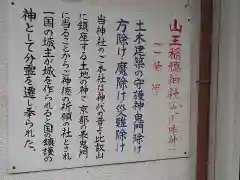 山王稲穂神社
土木建築の守護神鬼門除け
方除け魔除け災難除け
当神社のご本社は神代の昔そ比叡山
に鎮座する土地の神で京都の表鬼門
に当ることからご神徳の祈願の社とされ
一国の城主が城を作られると国の鎮護の
神として分霊を遷し奉られた、